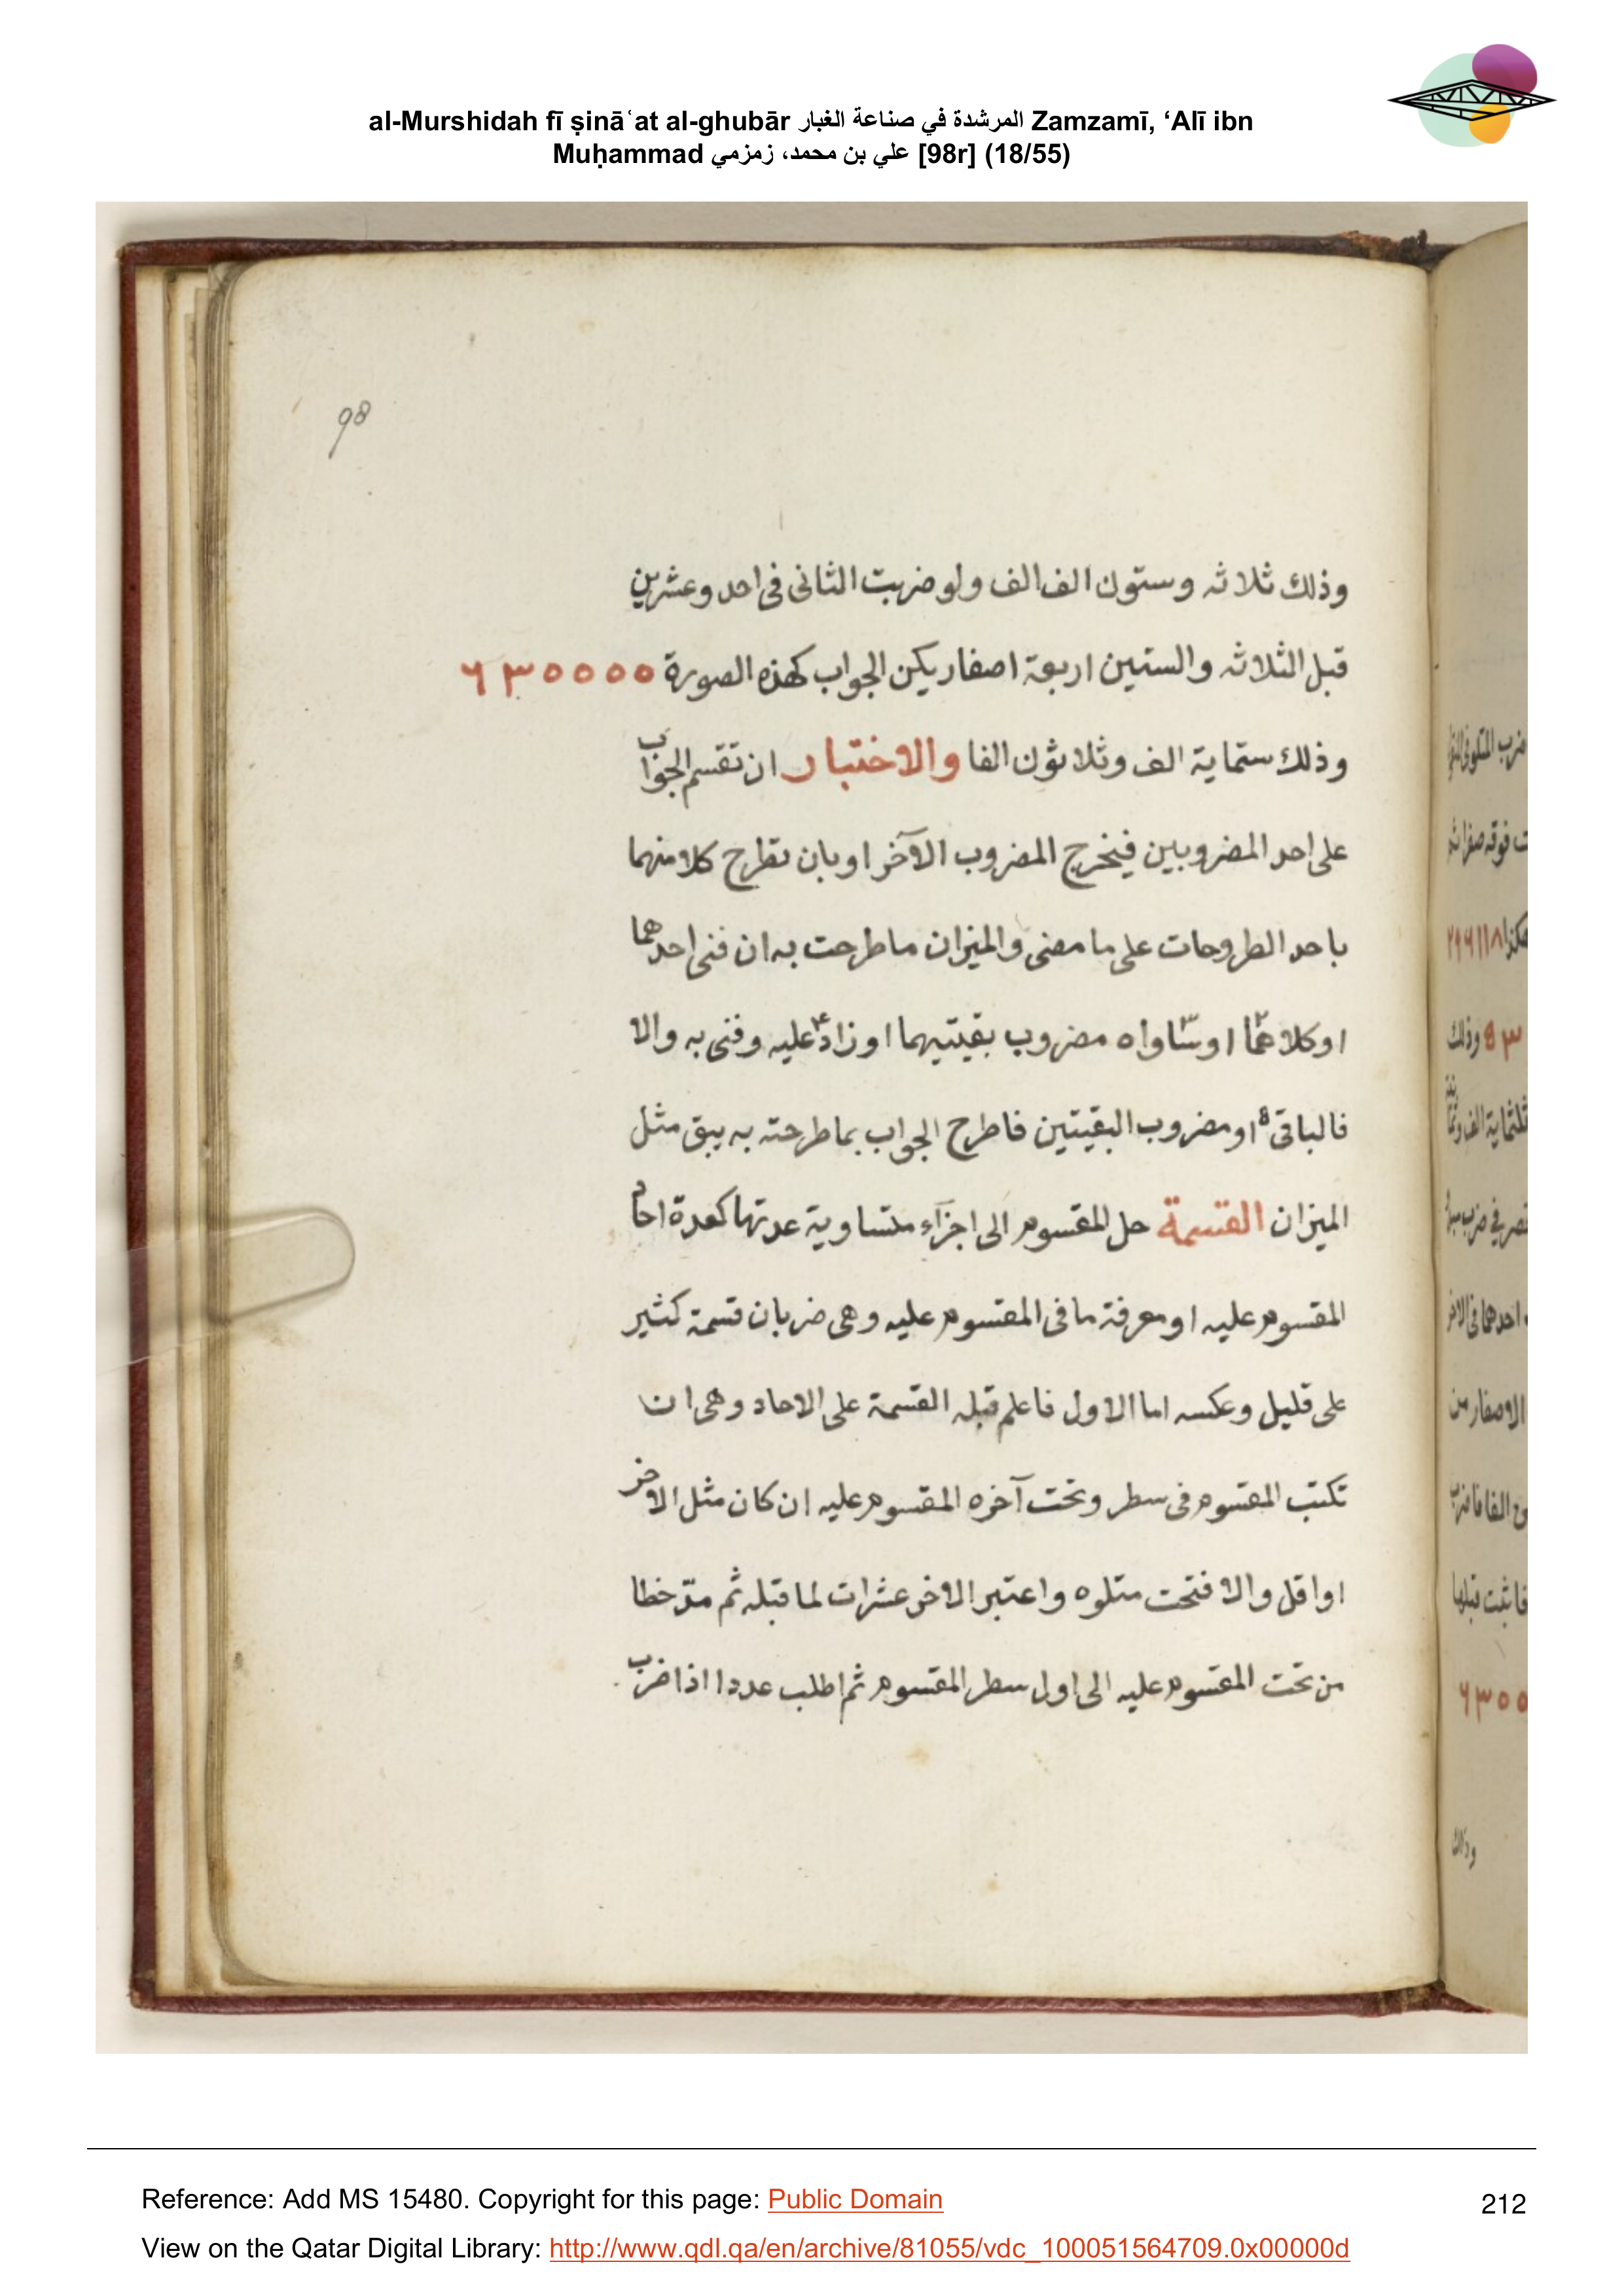 al-Murshidah fī ṣināʿat al-ghubār المرشدة في صناعة الغبار Zamzamī, ‘Alī ibn
Muḥammad علي بن محمد، زمزمي [98r] (18/55)
98
وذلك ثلاثه وستون الف الف ولو ضربت الثانى فى احد وعشرين
قبل الثلاثه والستين اربعة اصفار يكن الجواب كهذه الصورة ٦٣٠٠٠٠
وذلك ستماية الف وثلاثون الفا والاختبار ان تقسم الجواب
على احد المضروبين فيخرج المضروب الآخر او بان تطرح كلا منهما
باحد الطروحات على ما مضى والميزان ما طرحت به ان فنى احدهما
او كلاهما٢ او ساواه٣ مضروب بقيتيهما او زاد٤ عليه وفنى به والا
فالباقى٥ او مضروب البقيتين فاطرح الجواب بما طرحته به يبق مثل
الميزان القسمة حل المقسوم الى اجزآء متساوية عدتها كعدة احاد
المقسوم عليه او معرفة ما فى المقسوم عليه وهى ضربان قسمة كثير
على قليل وعكسه اما الاول فاعلم قبله القسمة على الاحاد وهى ان
تكتب المقسوم فى سطر وتحت آخره المقسوم عليه ان كان مثل الاخر
او اقل والا فتحت متلوه واعتبر الاخر عشرات لما قبله ثم مدّ خطا
من تحت المقسوم عليه الى اول سطر المقسوم ثم اطلب عددا اذا ضرب
وذلك
Reference: Add MS 15480. Copyright for this page: Public Domain
212
View on the Qatar Digital Library: http://www.qdl.qa/en/archive/81055/vdc_100051564709.0x00000d